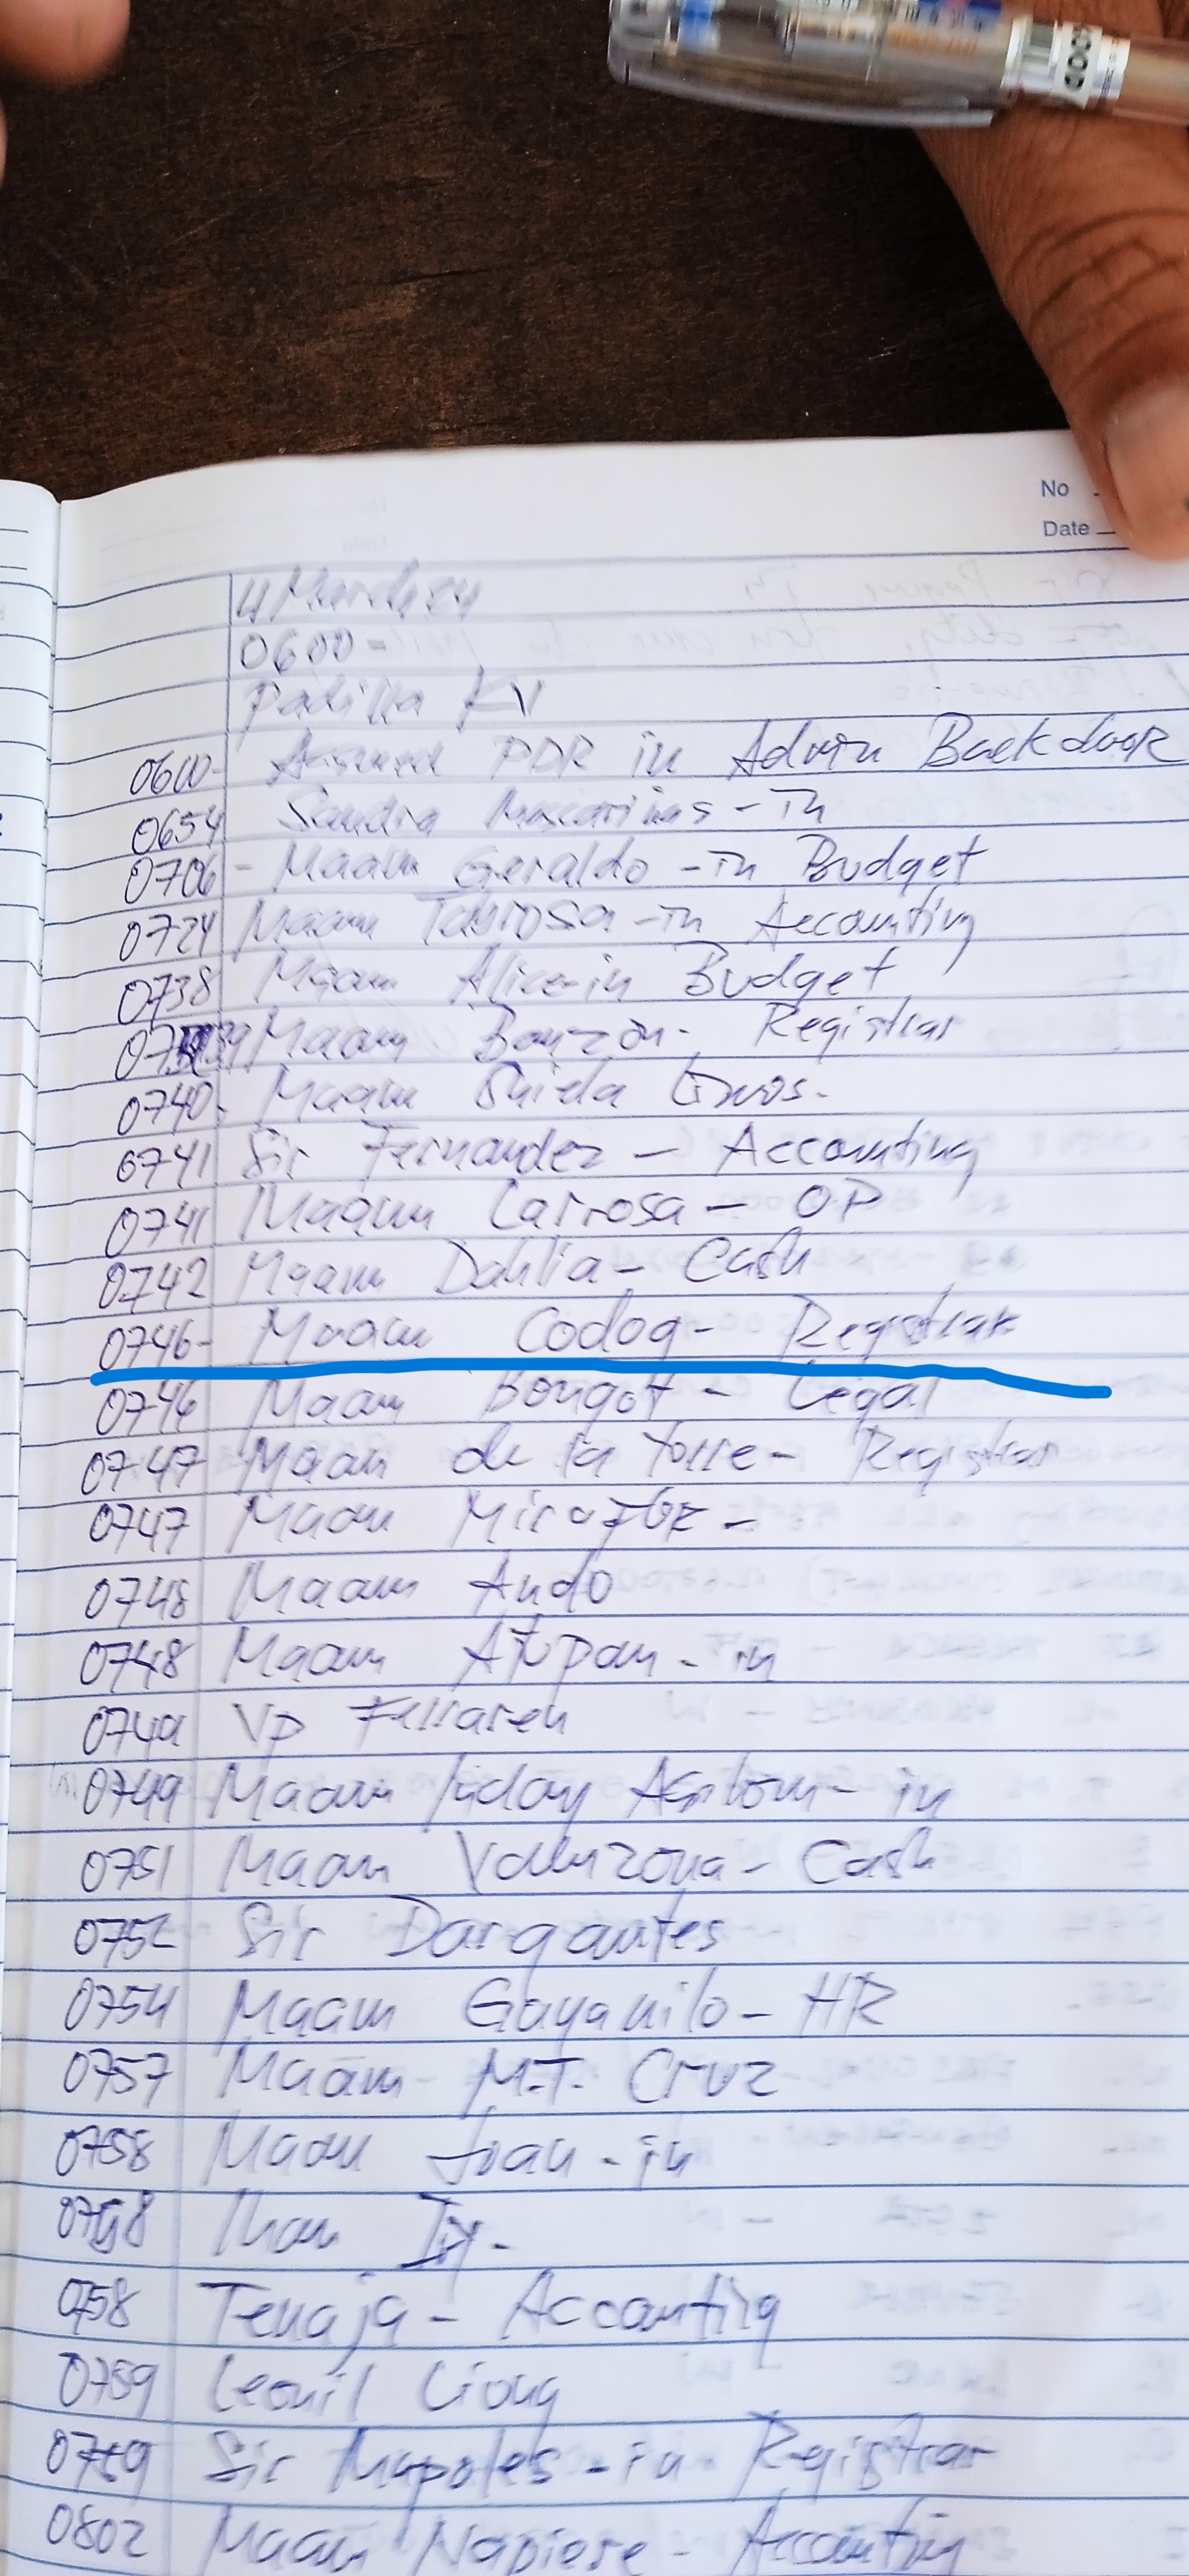 No
Date
4 March 24
0600 =
Padilla KV
0600- Assumed PDR in Admin Backdoor
0654 Sandra Mascariñas - in
0706 - Maam Geraldo - in Budget
0724 Maam Tabrosa - in Accounting
0738 Maam Alice - in Budget
0739 Maam Bonzon - Registrar
0740. Maam Shiela
0741 Sir Fernandez - Accounting
0741 Maam Carrosa - OP
0742 Maam Dahlia - Cash
0746- Maam Codog - Registrar
0746 Maam Bongot - Legal
0747 Maam de la Torre - Registrar
0747 Maam Miraflor -
0748 Maam Ando
0748 Maam Atupan - in
0749 VP Ferraren
0749 Maam - in
0751 Maam Valenzona - Cash
0752 Sir Dargantes
0754 Maam Gayanilo - HR
0757 Maam - M.T. Cruz
0758 Maam Joan - in
0758 Mam
0758 Tenaja - Accounting
0759 Leonil Liong
0759 Sir Mapoles - in Registrar
0802 Maam Napiere - Accounting